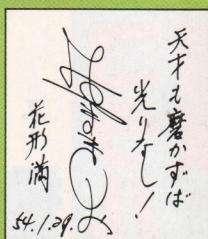 天才も磨かずば
光りなし！
花形満
54.1.29.